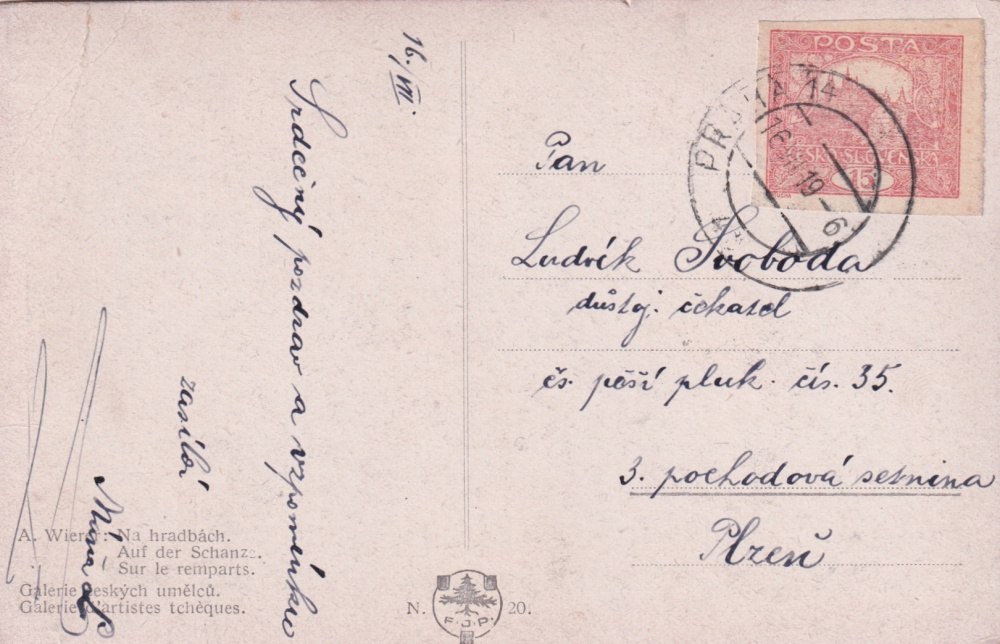 16./VII.
Srdečný pozdrav a vzpomínku
zasílá
Pan
Ludvík Svoboda
důstoj. čekatel
čs. pěší pluk. čís. 35.
3. pochodová setnina
Plzeň
POSTA
ČESKO-SLOVENSKÁ
15
PRAHA 14
16 VII 19 - 6
A. Wierer: Na hradbách.
Auf der Schanze.
Sur le remparts.
Galerie českých umělců.
Galerie d'artistes tchèques.
N. 20.
F.J.P.